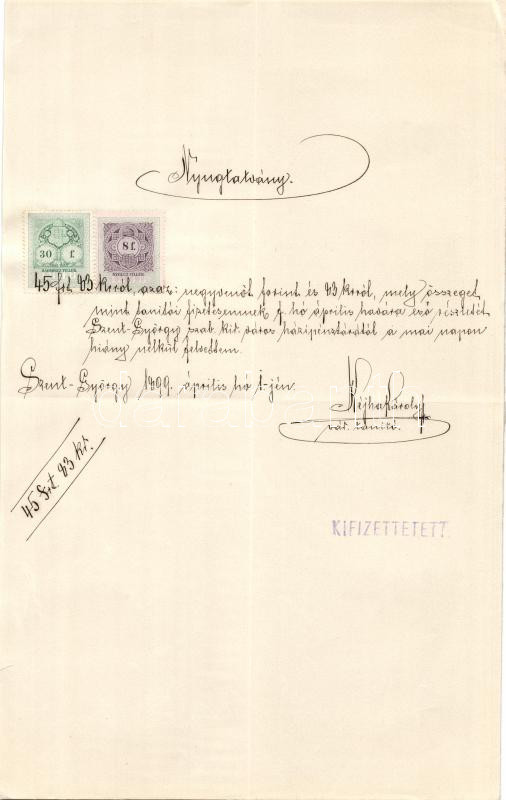 Nyugtatvány.
30 f.
HARMINCZ FILLÉR
8 f.
NYOLCZ FILLÉR
45 frt 83 krról, azaz: negyvenöt forint és 83 krról, mely összeget
mint tanítói fizetésemnek f. hó április havára eső részletét
Szent-György szab. kir. város házipénztárától a mai napon
hiány nélkül felvettem.
Szent-György 1899. április hó 1-jén.
Károly
vár. tanító.
45 frt. 83 kr.
KIFIZETTETETT.